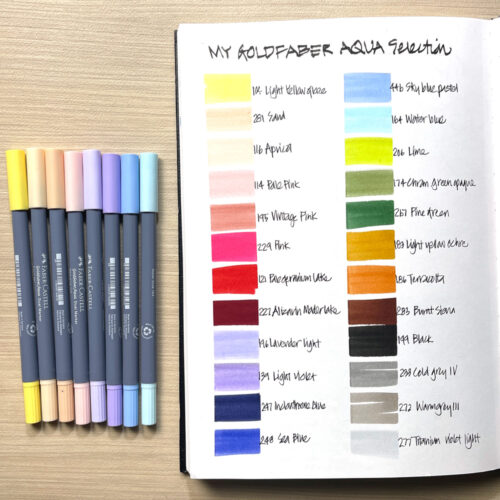 MY GOLDFABER AQUA Selection
Light Yellow glaze
281 Sand
116 Apricot
114 Pale Pink
195 Vintage Pink
229 Pink
121 Pale geranium Lake
227 Alizarin Madder Lake
196 Lavender light
139 Light Violet
247 Indanthrene Blue
248 Sea Blue
446 Sky blue pastel
164 Water blue
206 Lime
174 Chrom green opaque
267 Pine green
183 Light yellow ochre
186 Terracotta
283 Burnt Siena
199 Black
Cold grey IV
272 Warm grey III
277 Titanium violet light
FABER-CASTELL
FABER-CASTELL